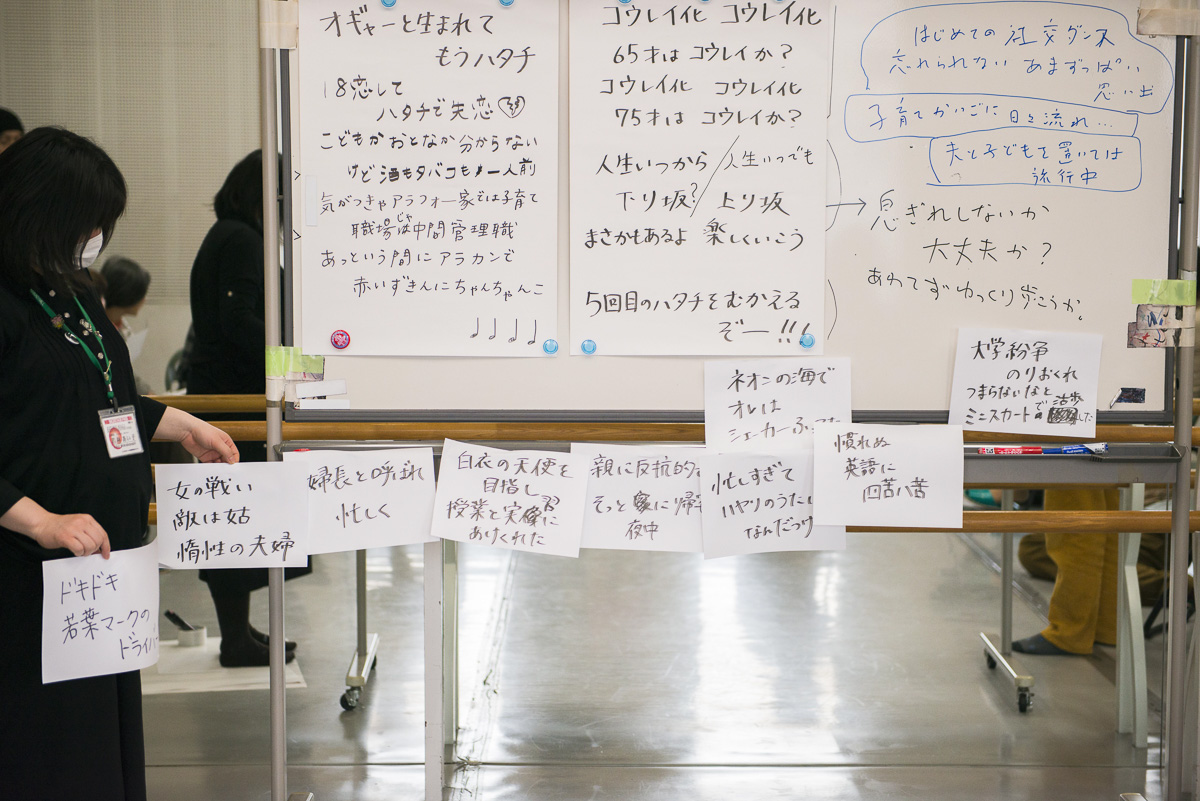 オギャーと生まれて
もうハタチ
18恋して
ハタチで失恋
こどもかおとなか分からない
けど酒もタバコも一人前
気がつきゃアラフォー家では子育て
職場じゃ中間管理職
あっという間にアラカンで
赤いずきんにちゃんちゃんこ
♩♩♩♩
コウレイ化 コウレイ化
65才はコウレイか?
コウレイ化 コウレイ化
75才は コウレイか?
人生いつから/人生いつでも
下り坂?/上り坂
まさかもあるよ 楽しくいこう
5回目のハタチをむかえる
ぞー!!!
はじめての 社交ダンス
忘れられない あまずっぱい
思い出
子育てかいごに 日々流れ…
夫と子どもを置いては
流行中
→息ぎれしないか
大丈夫か?
あわてずゆっくり歩こうか。
大学紛争
のりおくれ
つまらないなと
ミニスカートで 活歩
した
ネオンの海で
オレは
シェーカーふって
慣れぬ
英語に
四苦八苦
忙しすぎて
ハヤリのうた
なんだっけ
親に反抗的
そっと家に帰宅
夜中
白衣の天使を
目指し
授業と実習に
あけくれた
婦長と呼ばれ
忙しく
女の戦い
敵は姑
惰性の夫婦
ドキドキ
若葉マークの
ドライバー